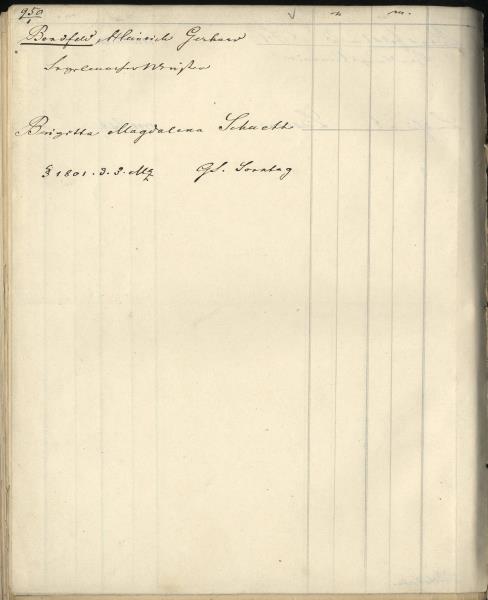 950
Bondfeld, Hinrich Gerhard
Segelmacher Meister
Brigitta Magdalena Schuett
1801. 3. 3. Mz GS. Sonntag